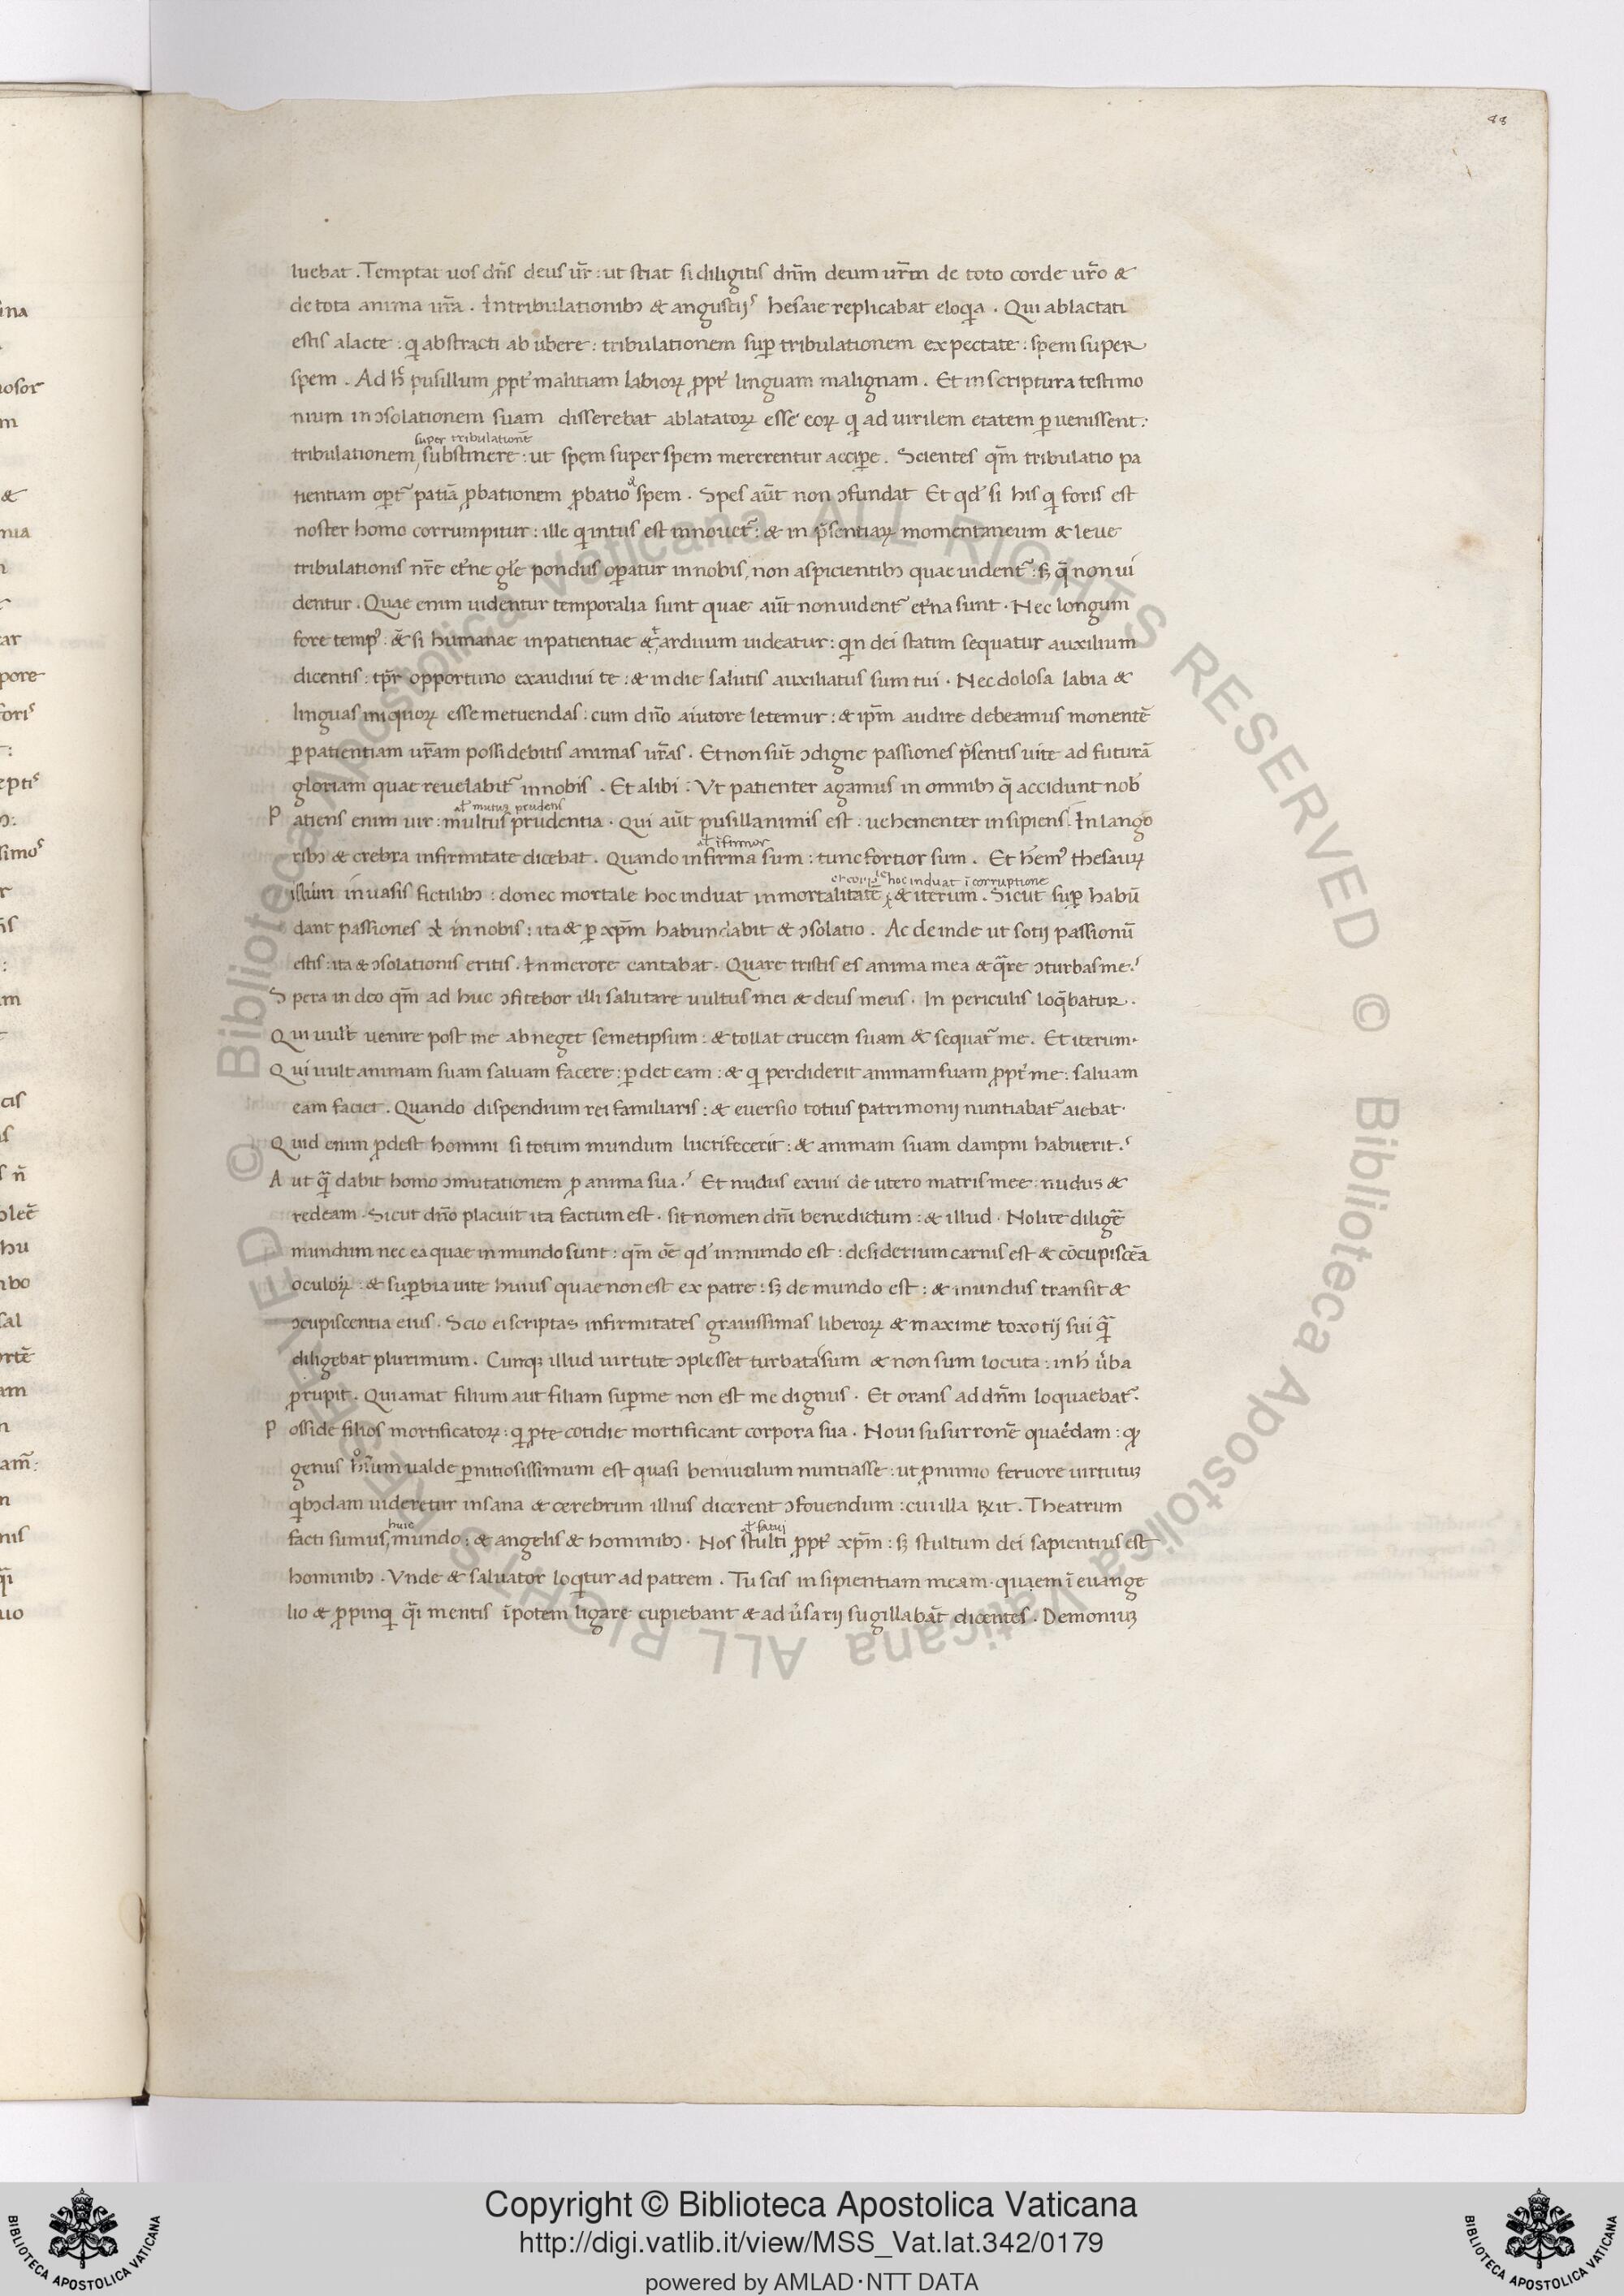 88
luebat . Temptat uos dn̄s deus ur̄ : ut sciat si diligitis dn̄m deum ur̄m de toto corde ur̄o &
de tota anima ur̄a . In tribulationibꝫ & angustijs hesaie replicabat eloqia . Qui ablactati
estis alacte : qi abstracti ab ubere : tribulationem suꝑ tribulationem expectate : spem super
spem . Ad hc̄ pusillum ꝓpt̄ malitiam labioꝝ ꝓpt̄ linguam malignam . Et in scriptura testimo
nium in ↄsolationem suam disserebat ablatatoꝝ esse eoꝝ qi ad uirilem etatem ꝑuenissent :
super tribulationē
tribulationem substinere : ut spem super spem mererentur acciꝑe . Scientes qm̄ tribulatio pa
tientiam oꝑt̄ patiā ꝓbationem ꝓbatio & spem . Spes aūt non ↄfundat Et qd' si his qi foris est
noster homo corrumpitur : ille qi intus est innouet̄ : & in p̄sentiaꝝ momentaneum & leue
tribulationis nr̄e et̄ne gl̄e pondus oꝑatur in nobis, non aspicientibꝫ quae uident̄ : sꝫ q̄ non ui
dentur . Quae enim uidentur temporalia sunt quae aūt non uident̄ et̄na sunt . Nec longum
fore temp9 . &̄ si humanae inpatientiae & arduum uideatur : qin dei statim sequatur auxilium
dicentis : tp̄r opportuno exaudiui te : & in die salutis auxiliatus sum tui . Nec dolosa labia &
linguas iniquioꝝ esse metuendas : cum dn̄o aiutore letemur : & ip̄m audire debeamus monentē
ꝑ patientiam ur̄am possidebitis animas ur̄as . Et non sūt ↄdigne passiones p̄sentis uite ad futurā
gloriam quae reuelabit̄ in nobis . Et alibi : Vt patienter agamus in omnibꝫ q̄ accidunt nob̄
al' mutuꝫ prudens
P atiens enim uir : multus prudentia . Qui aūt pusillanimis est : uehementer insipiens . In lango
al' ifirmor
ribꝫ & crebra infirmitate dicebat . Quando infirma sum : tunc fortior sum . Et hēm9 thesauꝝ
hoc induat īcorruptione
illum in uasis fictilibꝫ : donec mortale hoc induat inmortalitatē & iterum . Sicut suꝑ habū
dant passiones xi in nobis : ita & ꝑ xp̄m habundabit & ↄsolatio . Ac deinde ut sotij passionū
estis : ita & ↄsolationis eritis . In merore cantabat . Quare tristis es anima mea & q̄re ↄturbas me ?
S pera in deo qm̄ ad huc ↄfitebor illi salutare uultus mei & deus meus . In periculis loq̄batur .
Q ui uult uenire post me abneget semetipsum : & tollat crucem suam & sequat̄ me . Et iterum .
Q ui uult animam suam saluam facere : ꝑdet eam : & qi perdiderit animam suam ꝓpt̄ me : saluam
eam faciet . Quando dispendium rei familiaris : & euersio totius patrimonij nuntiabat̄ aiebat .
Q uid enim ꝓdest homini si totum mundum lucrifecerit : & animam suam dampni habuerit ?
A ut q̄ dabit homo ↄmutationem ꝓ anima sua ? Et nudus exiui de utero matris mee : nudus &
redeam . Sicut dn̄o placuit ita factum est . sit nomen dn̄i benedictum : & illud . Nolite diligē
mundum nec ea quae in mundo sunt : qm̄ oē qd' in mundo est : desiderium carnis est & cōcupiscēa
oculoꝝ : & suꝑbia uite huius quae non est ex patre : sꝫ de mundo est : & mundus transit &
ↄcupiscentia eius . Scio ei scriptas infirmitates grauissimas liberoꝝ & maxime toxotij sui q̄
diligebat plurimum . Cunqꝫ illud uirtute ↄplesset turbata sum & non sum locuta : in h' ūba
ꝓrupit . Qui amat filium aut filiam suꝑ me non est me dignus . Et orans ad dn̄m loquaebat̄ .
P osside filios mortificatoꝝ : qi ꝓ te cotidie mortificant corpora sua . Noui susurronē quaedam : qđ
genus hoīum ualde ꝑnitiosissimum est quasi beniuolum nuntiasse : ut ꝓ nimio feruore uirtutuꝫ
qibꝫdam uideretur insana & cerebrum illius dicerent ↄfouendum : cui illa Rx̄it . Theatrum
huic al' fatui
facti sumus mundo : & angelis & hominibꝫ . Nos stulti ꝓpt̄ xp̄m : sꝫ stultum dei sapientius est
hominibꝫ . Vnde & saluator loqitur ad patrem . Tu scis insipientiam meam . quaem ī euange
lio & ꝓpinqi q̄i mentis īpotem ligare cupiebant & aduersarij sugillabāt dicentes . Demoniuꝫ
Copyright © Biblioteca Apostolica Vaticana
http://digi.vatlib.it/view/MSS_Vat.lat.342/0179
powered by AMLAD·NTT DATA
BIBLIOTECA APOSTOLICA VATICANA
BIBLIOTECA APOSTOLICA VATICANA